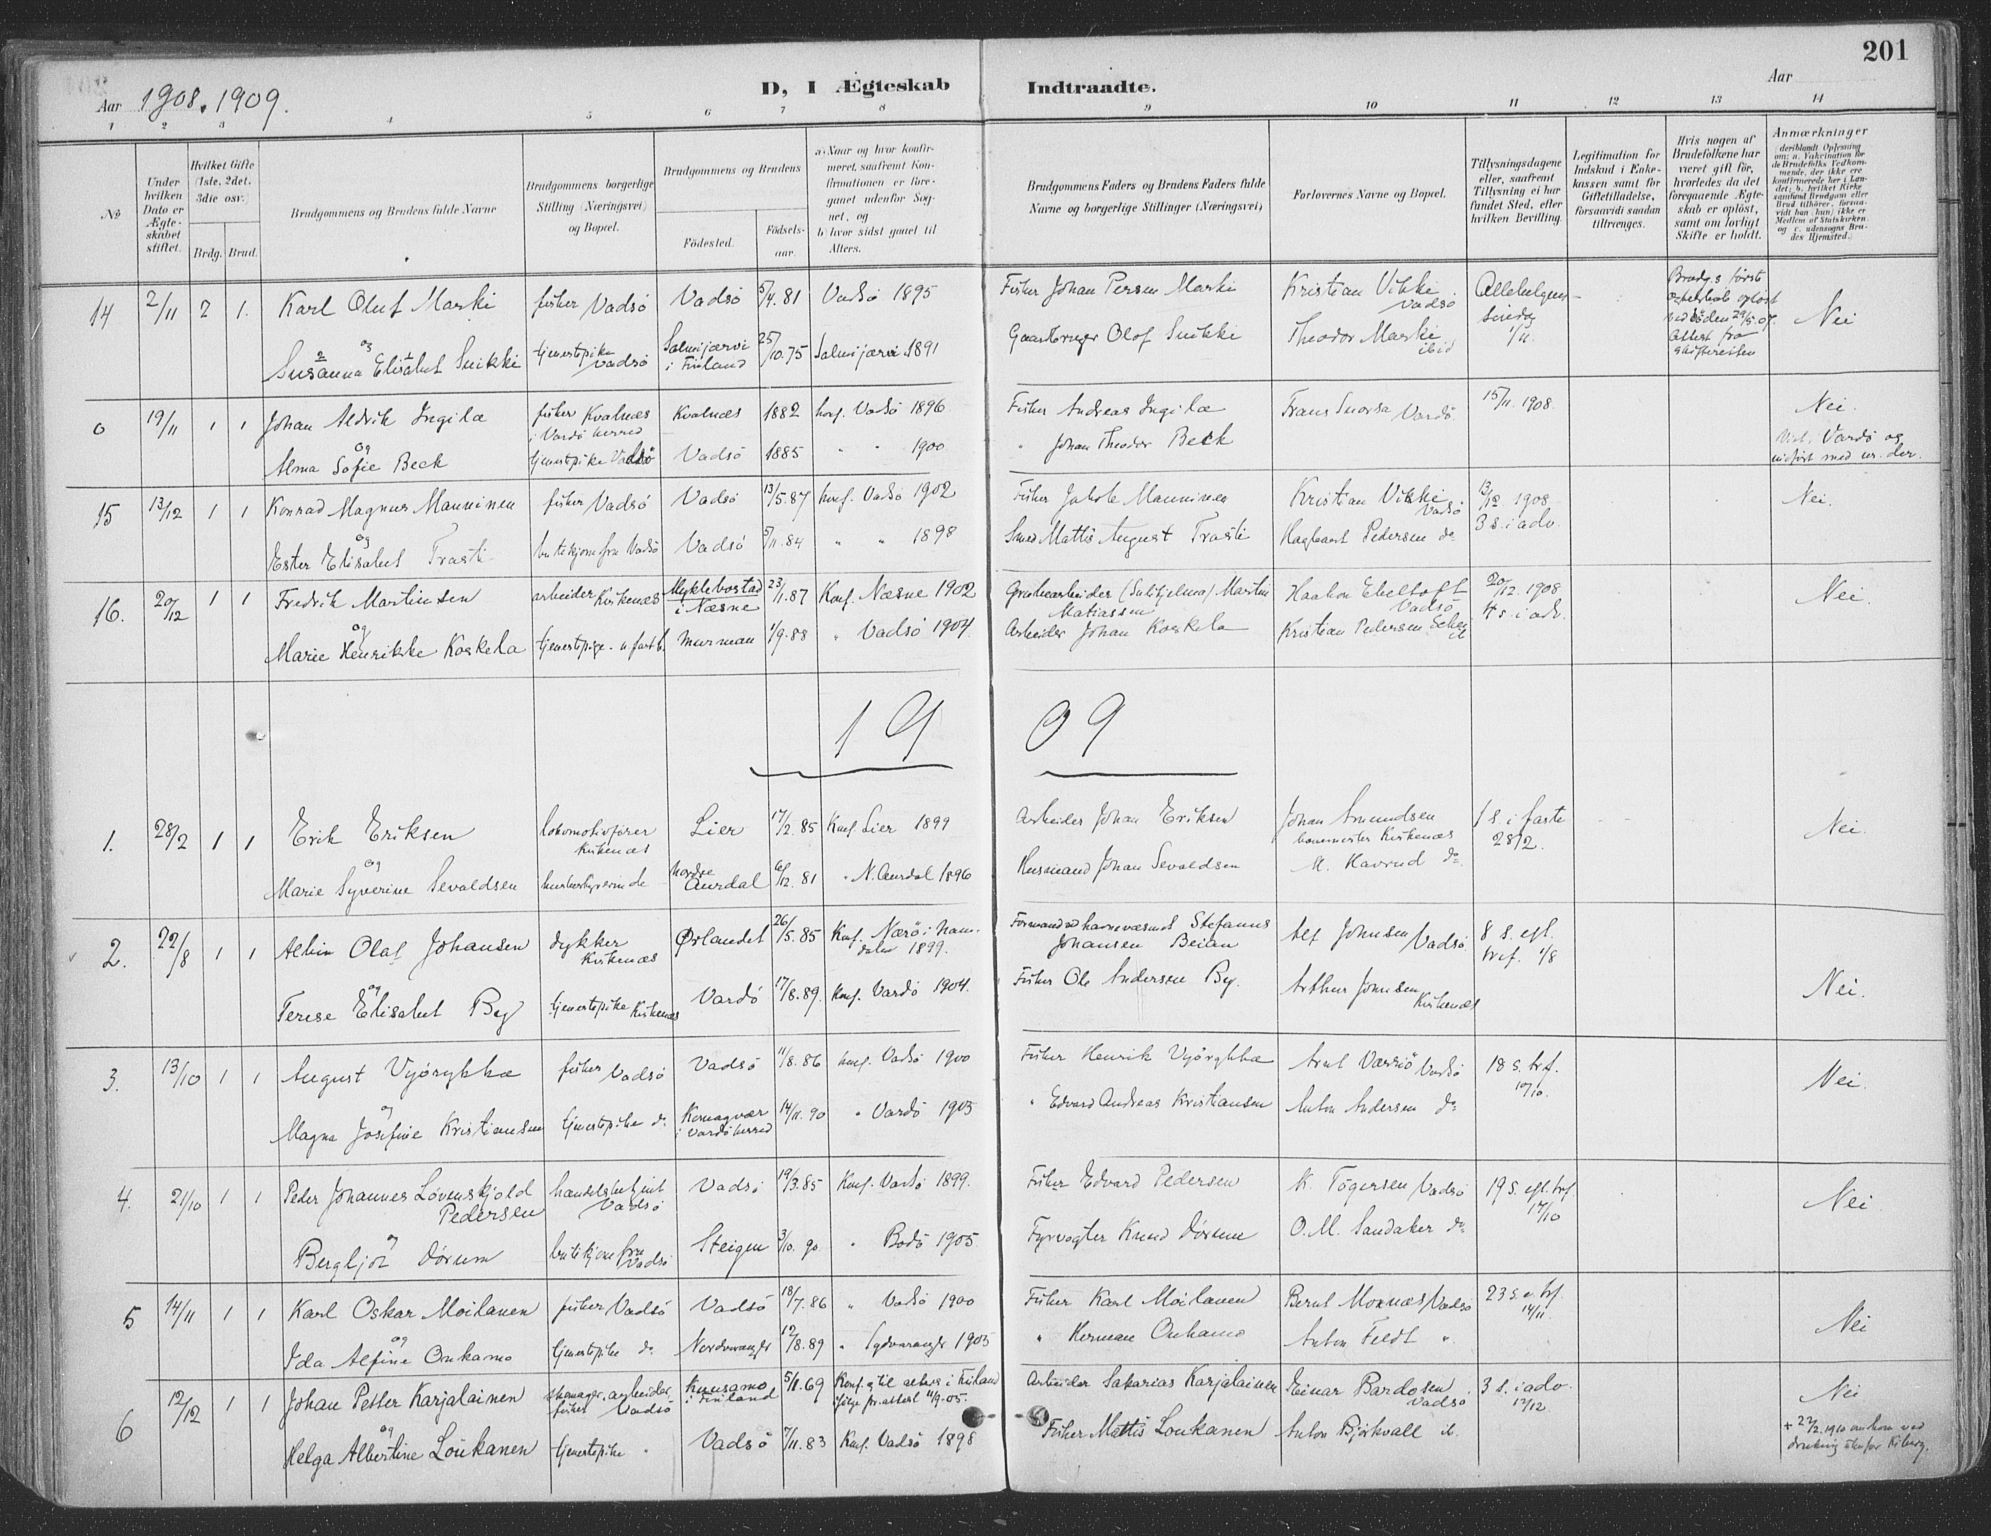 201
Aar 1908. 1909.
D, I Ægteskab Indtraadte.
Aar
1 2 3 4 5 6 7 8 9 10 11 12 13 14
No
Under hvilken Dato er Ægteskabet stiftet.
Hvilket Gifte (1ste, 2det, 3die osv.)
Brdg. Brud.
Brudgommens og Brudens fulde Navne
Brudgommens borgerlige Stilling (Næringsvei) og Bopæl.
Brudgommens og Brudens
Fødested.
Fødselsaar.
a) Naar og hvor konfirmeret, saafremt Konfirmationen er foregaaet udenfor Sognet, og
b) hvor sidst gaaet til Alters.
Brudgommens Faders og Brudens Faders fulde Navne og borgerlige Stillinger (Næringsvei)
Forlovernes Navne og Bopæl.
Tillysningsdagene eller, saafremt Tillysning ei har fundet Sted, efter hvilken Bevilling.
Legitimation for Indskud i Enkekassen samt for Giftetilladelse, forsaavidt saadan tiltrænges.
Hvis nogen af Brudefolkene har været gift før, hvorledes da det foregaaende Ægteskab er opløst, samt om lovligt Skifte er holdt.
Anmærkninger
deriblandt Oplysning om: a. Vakcination for de Brudefolks Vedkommende, der ikke ere konfirmerede her i Landet; b. hvilket Kirkesamfund Brudgom eller Brud tilhører, forsaavidt han (hun) ikke er Medlem af Statskirken og c. udensogns Brudes Hjemsted.
14 2/11 2 1. Karl Oluf Marki fisker Vadsö Vadsö 5/4.81 Vadsö 1895 Fisker Johan Persen Marki Kristian Vikki Vadsö Allehelgensöndag 1/11 Nei
og
Susanna Elisabet Snikki tjenestepike Vadsö Salmijærvi i Finland 25/10.75 Salmijærvi 1891 Gaardbruger Olof Snikki Theodor Marki ibid
0 19/11 1 1 Johan Aldrik Ingila fisker Kvalnæs i Vardö herred Kvalnæs 1882 konf. Vadsö 1896 Fisker Andreas Ingila Frans Snorsa Vardö 15/11.1908. Nei.
og
Alma Sofie Beck tjenestpike Vadsö Vadsö 1885 " " 1900 " Johan Theodor Beck Vardö og
15 13/12 1 1 Konrad Magnus Manninen fisker Vadsö Vadsö 13/5.87 konf. Vadsö 1902 Fisker Jakob Manninen Kristian Vikki Vadsö 13/12 1908 3 s. i adv. Nei.
og
Ester Elisabet Trasti butikjomfru Vadsö Vadsö 5/11.84 " " 1898 Smed Mattis August Trasti Hagbart Pedersen do
16. 20/12 1 1 Fredrik Martinsen arbeider Kirkenæs Myklebostad i Næsne 23/1.87 Konf. Næsne 1902 Grubearbeider (Sulitjelma) Martin Matiassen Haakon Ebeltoft Vadsö 20/12.1908 4 s. i adv. Nei
og
Marie Henrikke Koskela tjenestepige Murman 1/9.88 " Vadsö 1904. Arbeider Johan Koskela Kristian Pedersen
1909
1. 28/2 1 1 Erik Eriksen lokomotivförer Kirkenæs Lier 17/2.85 Konf Lier 1899 Arbeider Johan Eriksen Johan Amundsen banemester Kirkenæs 1 s. i faste 28/2. Nei.
og
Marie Syverine Sevaldsen husbestyrerinde Nordre Aurdal 6/12.81 " N. Aurdal 1896 Husmand Johan Sevaldsen M. Havrud do
2. 22/8 1 1 Albin Olaf Johansen dykker Kirkenæs Ørlandet 26/5.85 Konf. Nærö i Namdalen 1899. Formand ved havnevæsenet Stefanus Johansen Beian Alf Johnsen Vadsö 8 s. eft. tref. 1/8
og
Terese Elisabet By tjenestpike Kirkenæs Vardö 17/8.89. Konf. Vardö 1904. Fisker Ole Andersen By. Arthur Johnsen Kirkenæs Nei.
3. 13/10 1 1 August Vyörykka fisker Vadsö Vadsö 11/8.86 konf. Vadsö 1900 Fisker Henrik Vyörykka Aret Værriö Vadsö 18 s. trf. 10/10. Nei.
og
Magna Josefine Kristiansen tjenestepike do Komagvær i Vardöherred 14/11.90 " Vardö 1905 " Edvard Andreas Kristiansen Anton Andersen do
4. 21/10 1 1 Peder Johannes Lövenskjold Pedersen handelsbetjent Vadsö Vadsö 19/3.85 Konf. Vadsö 1899. Fisker Edvard Pedersen K. Tögersen Vadsö 19 s. eft. trf. 17/10 Nei
og
Bergljot Dörum butikjomfru Vadsö Steigen 3/10.90 " Bodö 1905 Fyrvogter Knud Dörum O.M. Sandaker do
5 14/11 1 1 Karl Oskar Moilanen fisker Vadsö Vadsö 18/7.86 " Vadsö 1900 Fisker Karl Moilanen Bernt Moxnæs Vadsö 23 s. e. trf. 14/11. Nei
og
Ida Alfine Onkamo tjenestepike do Nordvaranger 12/8.89 " Sydvaranger 1905 " Herman Onkamo Anton Feldt "
6 12/12 1 1 Johan Petter Karjalainen skomager, arbeider, fisker Vadsö Kuusamo i Finland 5/11.69 Konf. og til alters i Finland ifölge pr. attest 11/9-05. Arbeider Sakarias Karjalainen Einar Bardosen Vadsö 3 s. i adv. 12/12 Nei
og
Helga Albertine Loukanen tjenestpike " Vadsö 7/11.83 Konf. Vadsö 1898 Fisker Mattis Loukanen Anton Björkvall ib. + 22/2.1910 omkom ved drukning utenfor Kiberg.